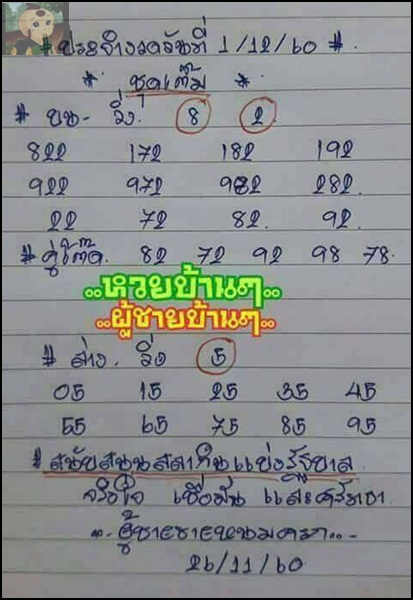 # ประจำงวดวันที่ 1/12/60 #
* ชุดเต็ม *
# บน - วิ่ง. 8 2
822 172 182 192
922 972 982 282
22 72 82. 92.
# คู่โต๊ด. 82 72 92 98 78.
..หวยบ้านๆ..
..ผู้ชายบ้านๆ..
# ล่าง. วิ่ง 5
05 15 25 35 45
55 65 75 85 95
# สนับสนุนสลากกินแบ่งรัฐบาล
จริงใจ เชื่อมั่น และศรัทธา
26/11/60